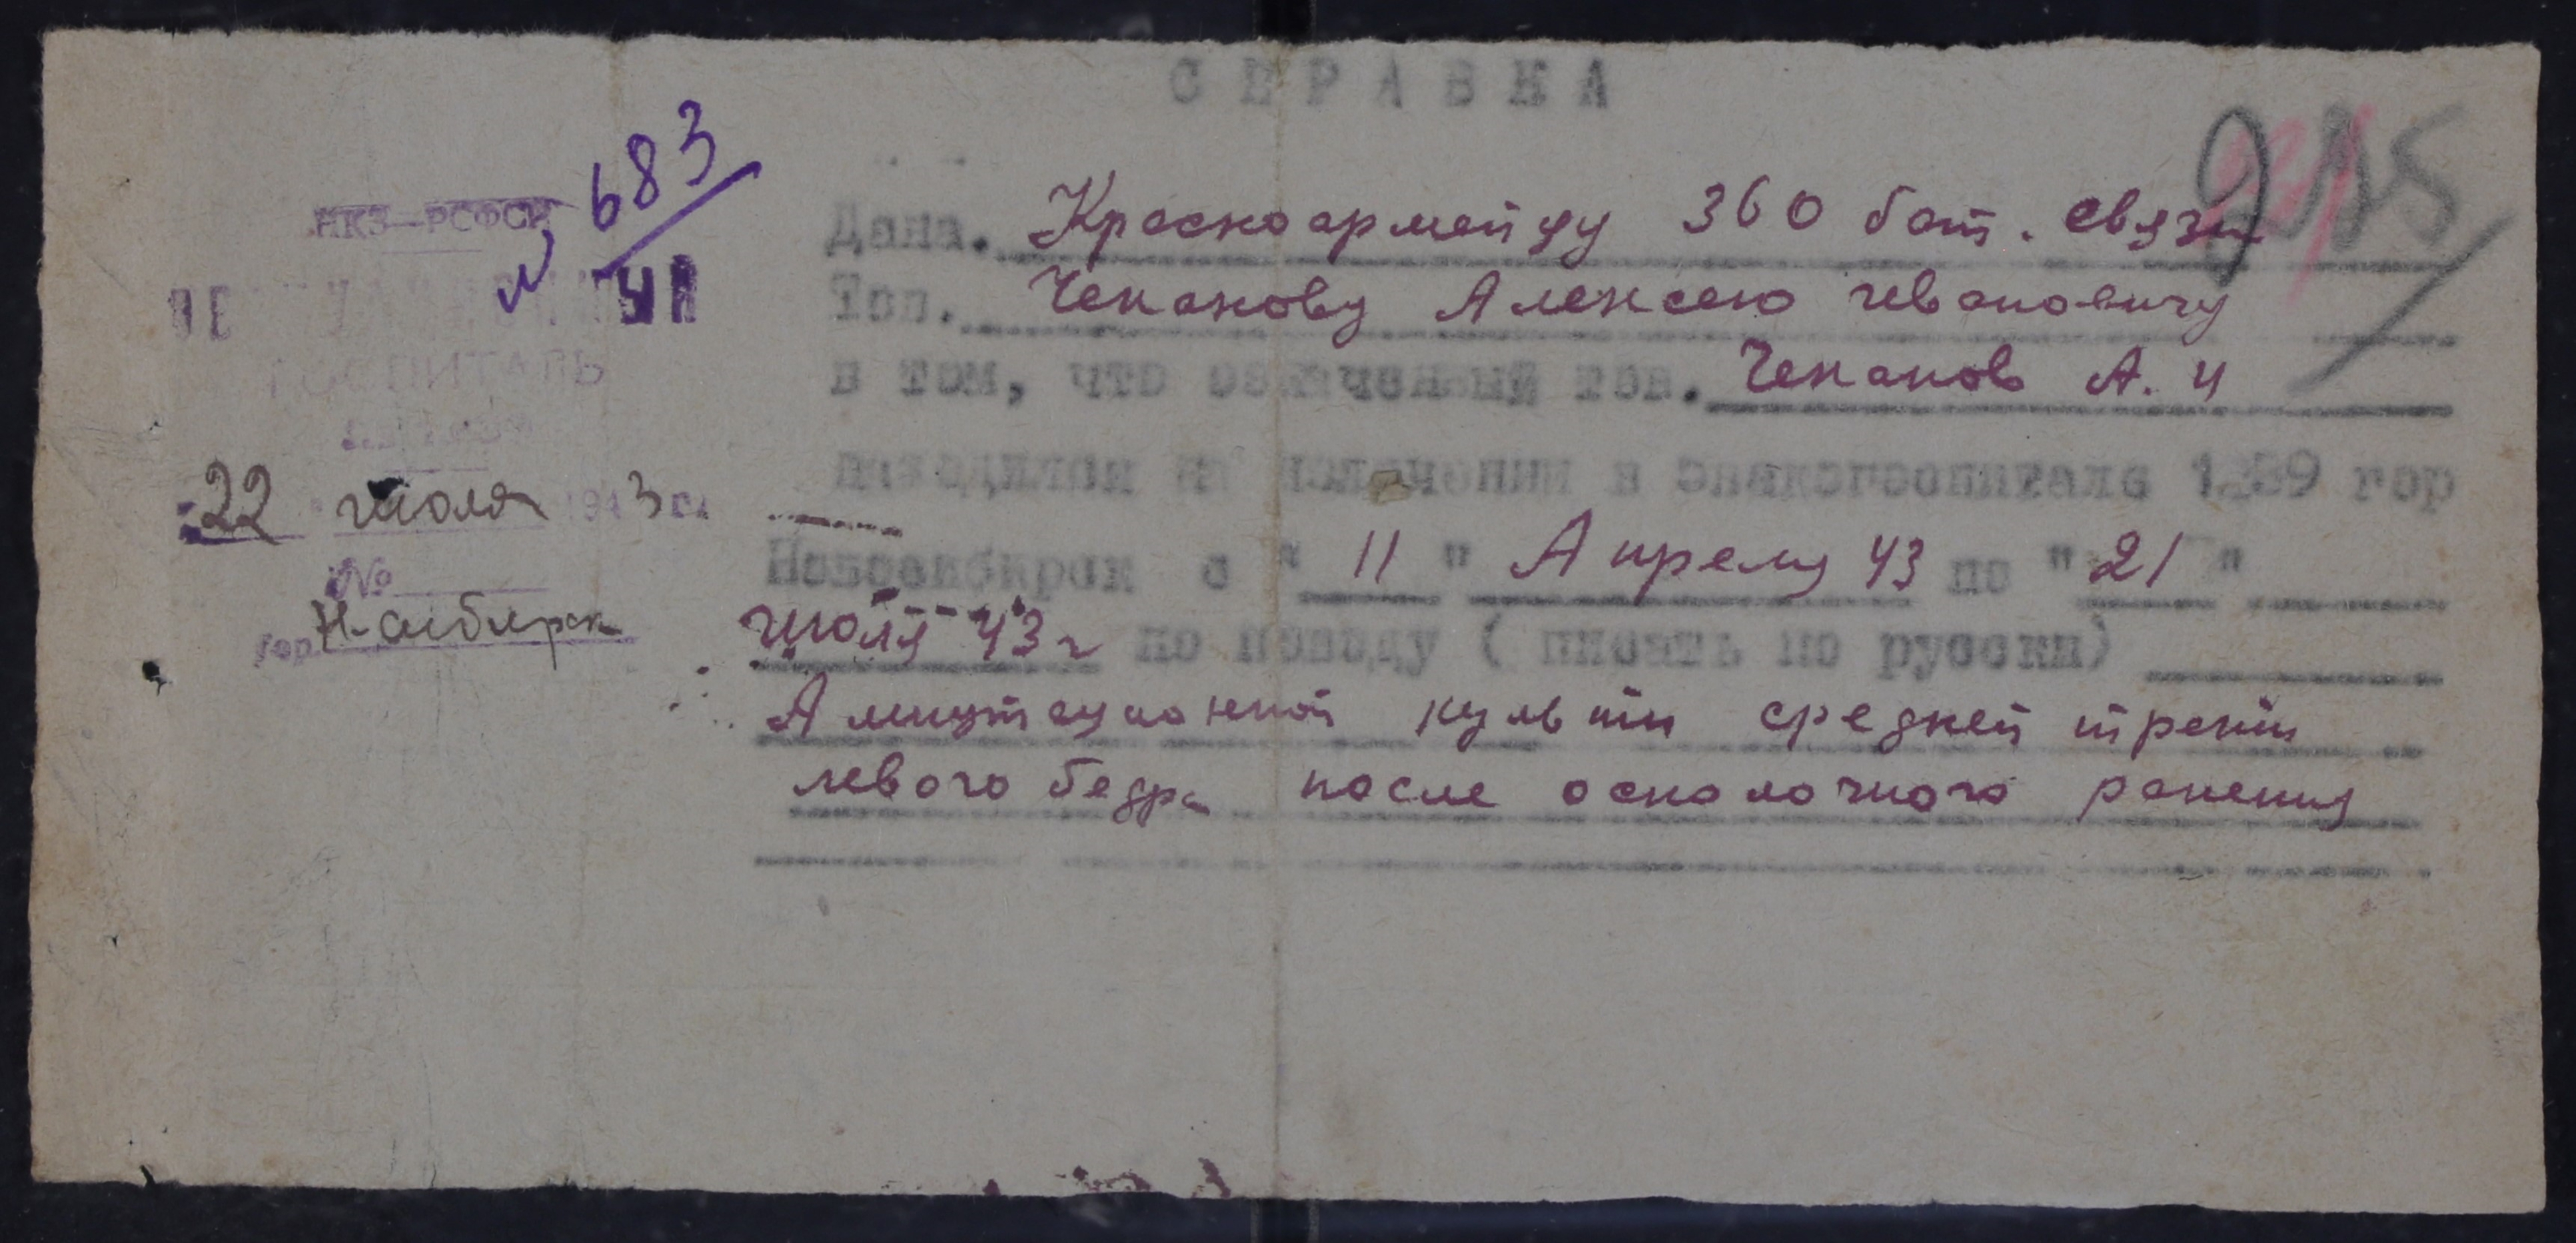 СПРАВКА
НКЗ-РСФСР
№ 683
ГОСПИТАЛЬ
22 июля 1943 г.
№
гор Н-сибирск
Дана. Красноармейцу 360 бат. связи
Тов. Чепакову Алексею Ивановичу
в том, что означенный тов. Чепаков А. И
находился на излечении в эвакогоспитале 1239 гор
Новосибирск с "11" Апреля 43 по "21"
июля 43 г по поводу ( писать по русски)
Ампутационной культи средней трети
левого бедра после осколочного ранения